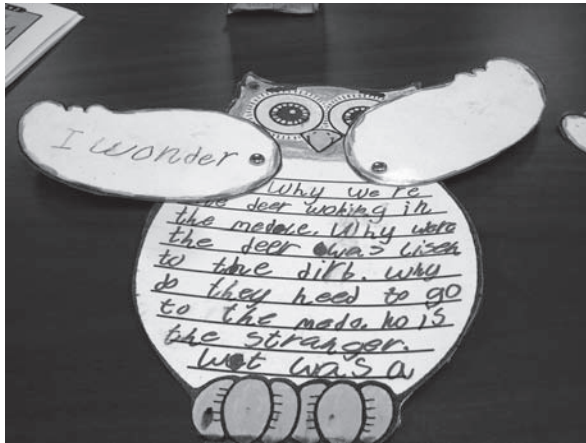 I wonder
Why we're
the deer woking in
the medole. Why were
the deer was lisen
to the dirb. why
do they need to go
to the medo. ho is
the stranger.
wot was a